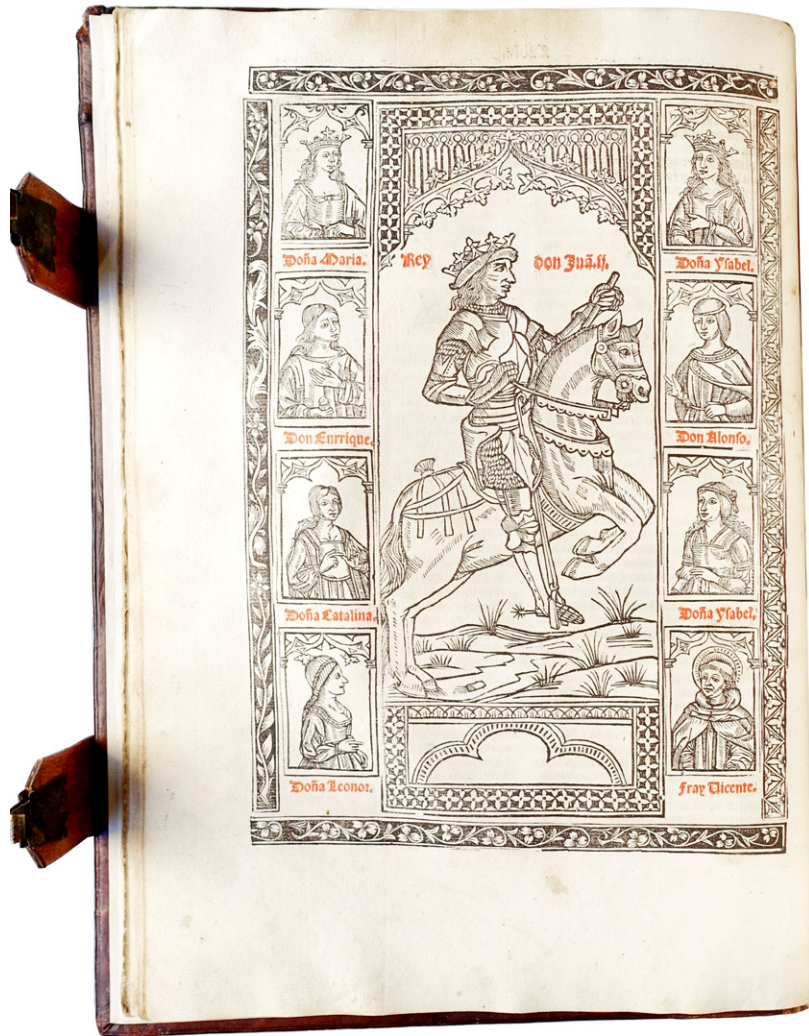 Doña Maria.
Rey don Juã.ij.
Doña Ysabel.
Don Enrrique.
Don Alonso.
Doña Catalina.
Doña Ysabel.
Doña Leonor.
fray Vicente.